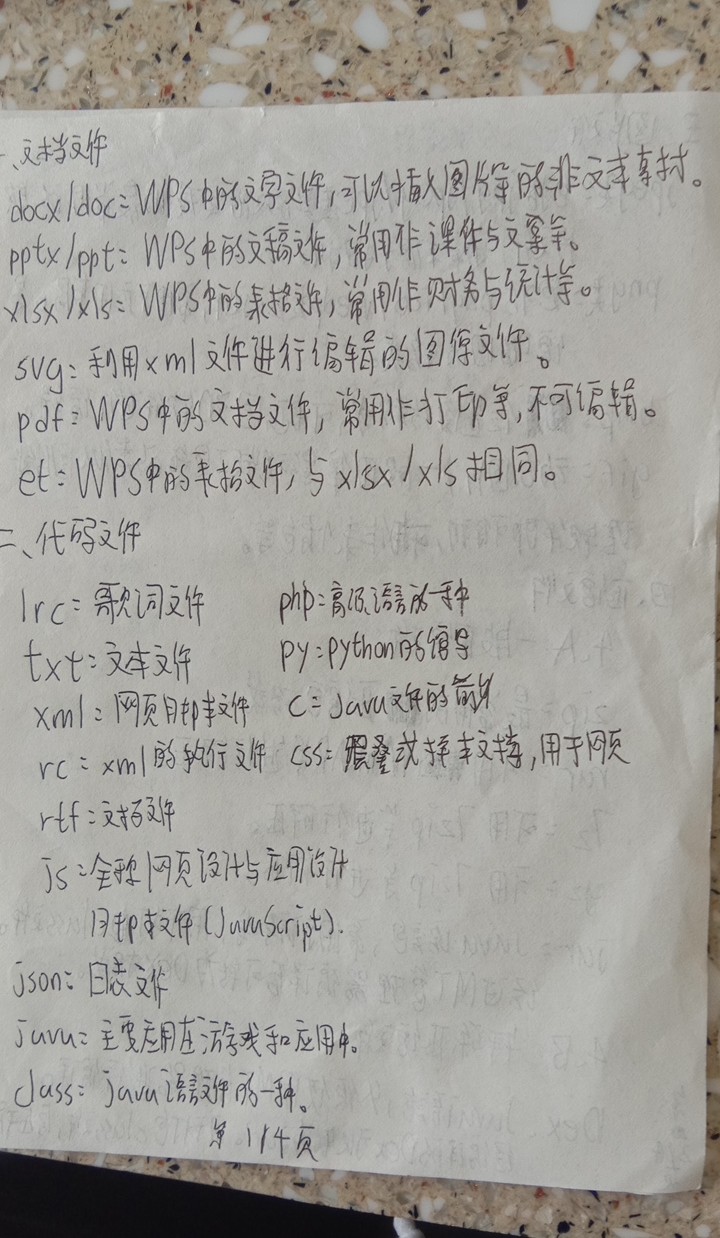 一、文档文件
docx/doc：WPS中的文字文件，可以插入图片等的非文本素材。
pptx/ppt：WPS中的文稿文件，常用作课件与文案等。
xlsx/xls：WPS中的表格文件，常用作财务与统计等。
svg：利用xml文件进行编辑的图像文件。
pdf：WPS中的文档文件，常用作打印等，不可编辑。
et：WPS中的表格文件，与xlsx/xls相同。
二、代码文件
lrc：歌词文件 php：高级语言的一种
txt：文本文件 py：python的编导
xml：网页脚本文件 c：java文件的前身
rc：xml的执行文件 css：层叠式样本文档，用于网页
rtf：文档文件
js：全称网页设计与应用设计
脚本文件(JavaScript).
json：日志文件
java：主要应用在游戏和应用中。
class：java语言文件的一种。
第1/4页